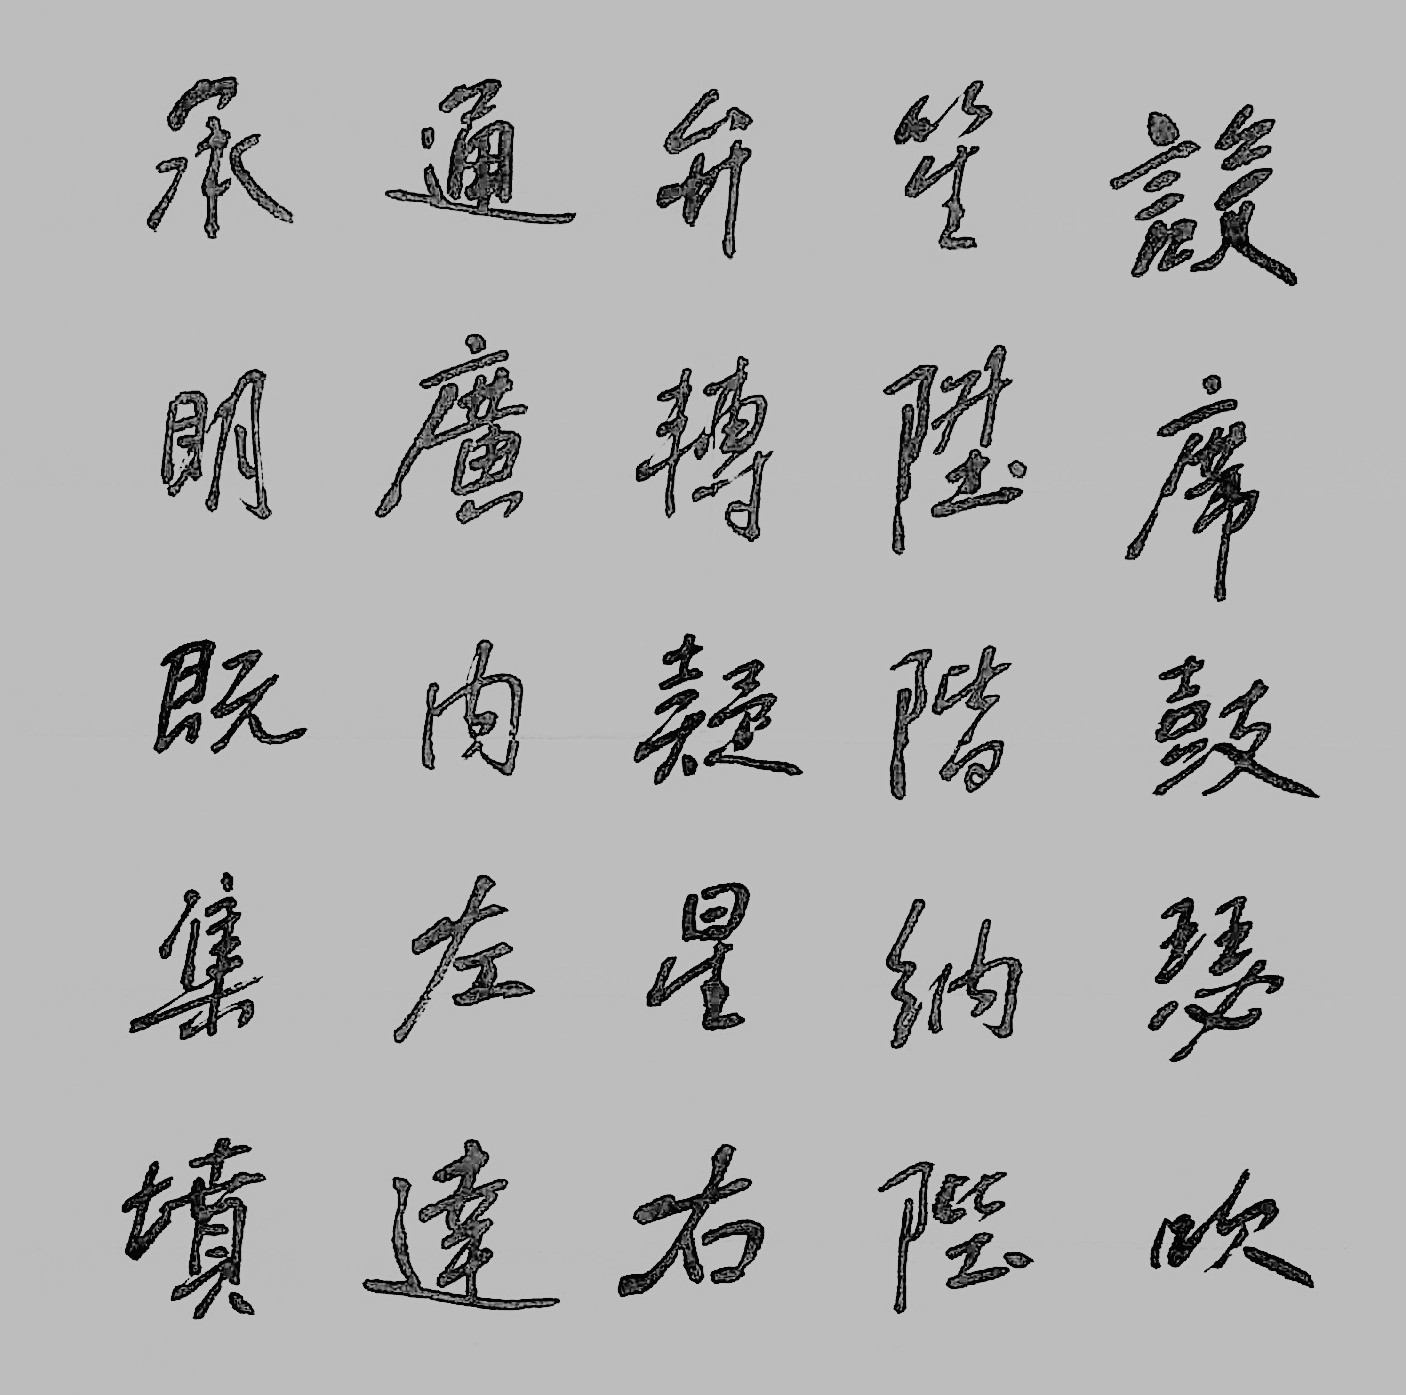 設席鼓瑟吹
笙陞階納陛
弁轉疑星右
通廣內左達
承明既集墳